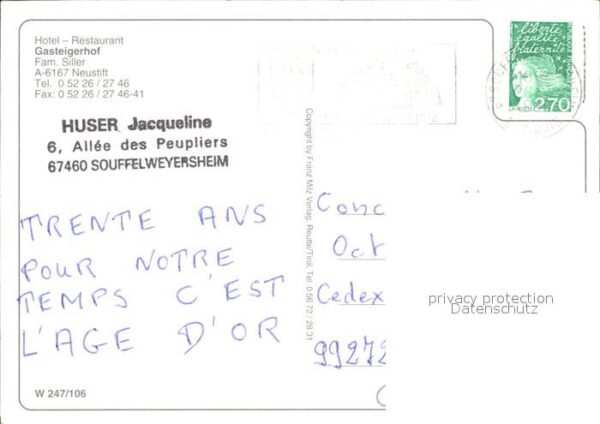 Hotel – Restaurant
Gasteigerhof
Fam. Siller
A-6167 Neustift
Tel. 0 52 26 / 27 46
Fax: 0 52 26 / 27 46-41
liberté
égalité
fraternité
LA POSTE
2,70
HUSER Jacqueline
6, Allée des Peupliers
67460 SOUFFELWEYERSHEIM
Copyright by Franz Milz Verlag, Reutte/Tirol, Tel. 0 56 72 / 28 31
TRENTE ANS
POUR NOTRE
TEMPS C'EST
L'AGE D'OR
Conc
Oct
Cedex
99272
privacy protection
Datenschutz
W 247/106